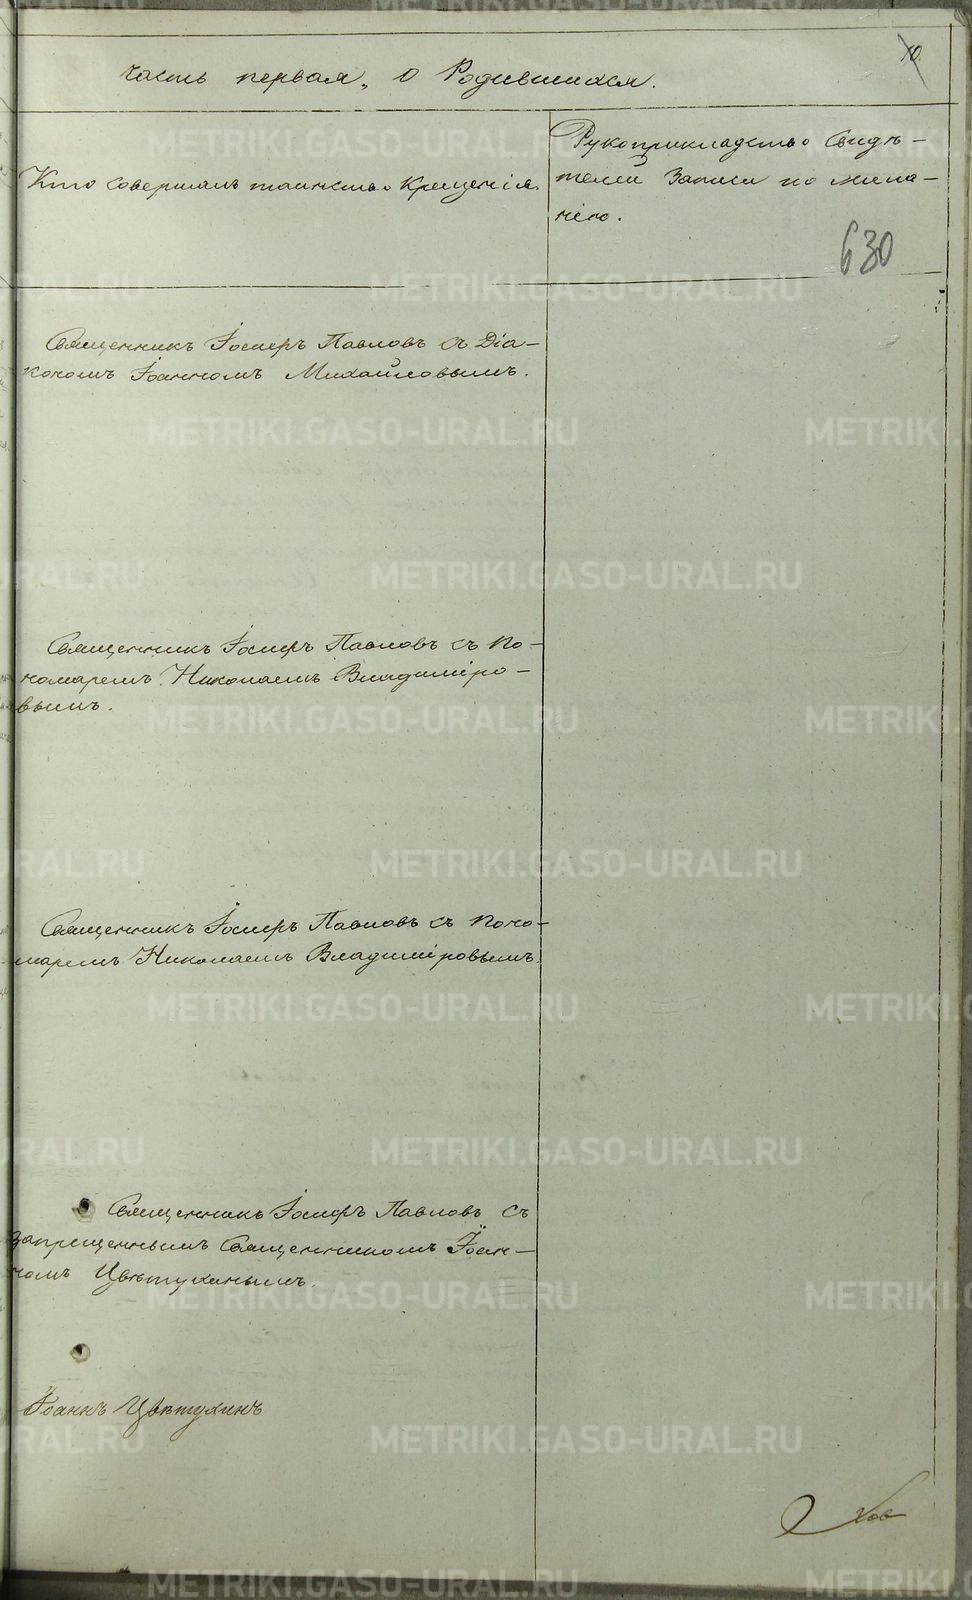 10.
часть первая, О Родившихся.
Кто совершалъ таинство Крещенія.
Рукоприкладство Свидѣ-
телей Записи по жела-
нію.
630
Священникъ Іосифъ Павловъ съ Діа-
кономъ Іоанномъ Михайловымъ.
Священникъ Іосифъ Павловъ съ По-
номаремъ Николаемъ Владиміро-
вымъ.
Священникъ Іосифъ Павловъ съ Поно-
маремъ Николаемъ Владиміровымъ.
Священникъ Іосифъ Павловъ съ
запрещеннымъ Священникомъ Іоан-
номъ Цвѣтухинымъ.
Іоаннъ Цвѣтухинъ
METRIKI.GASO-URAL.RU